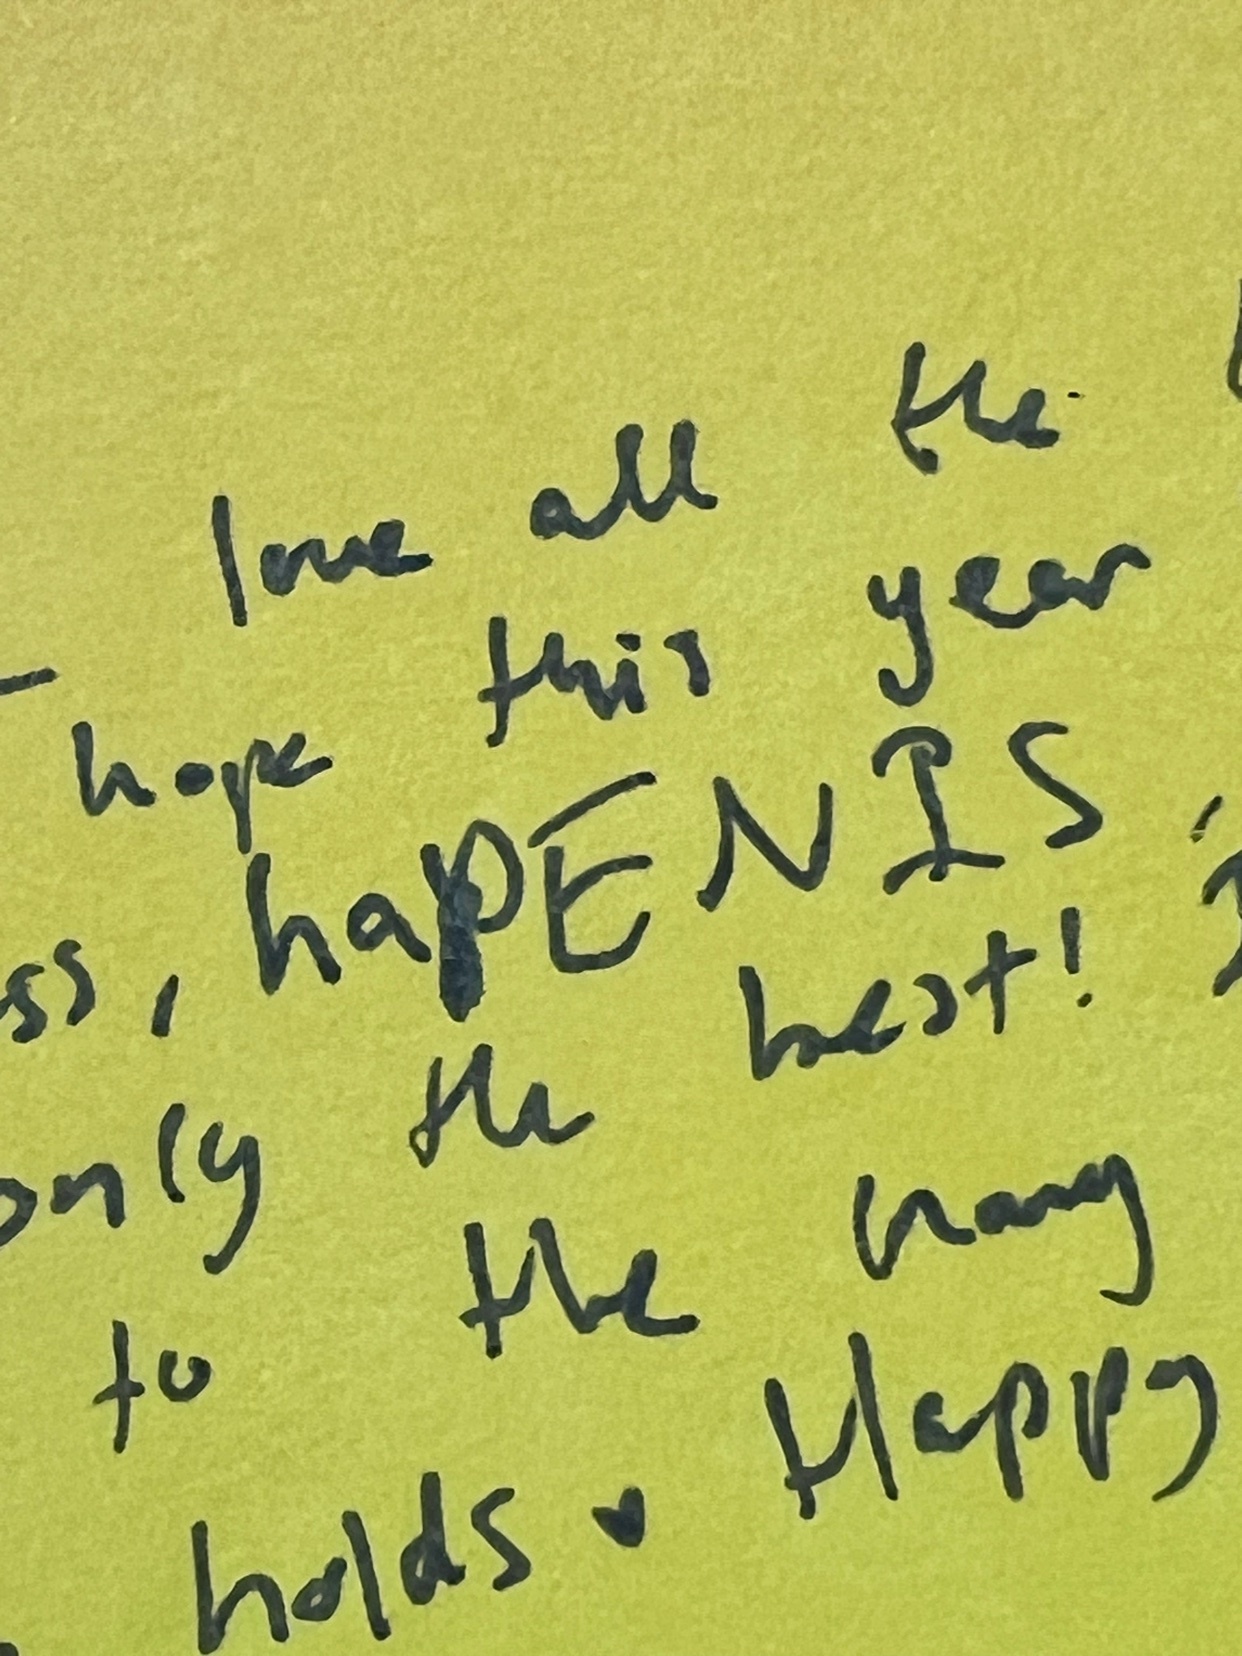 love all the
hope this year
ss, hapENIS,
only the best!
to the many
holds Happy